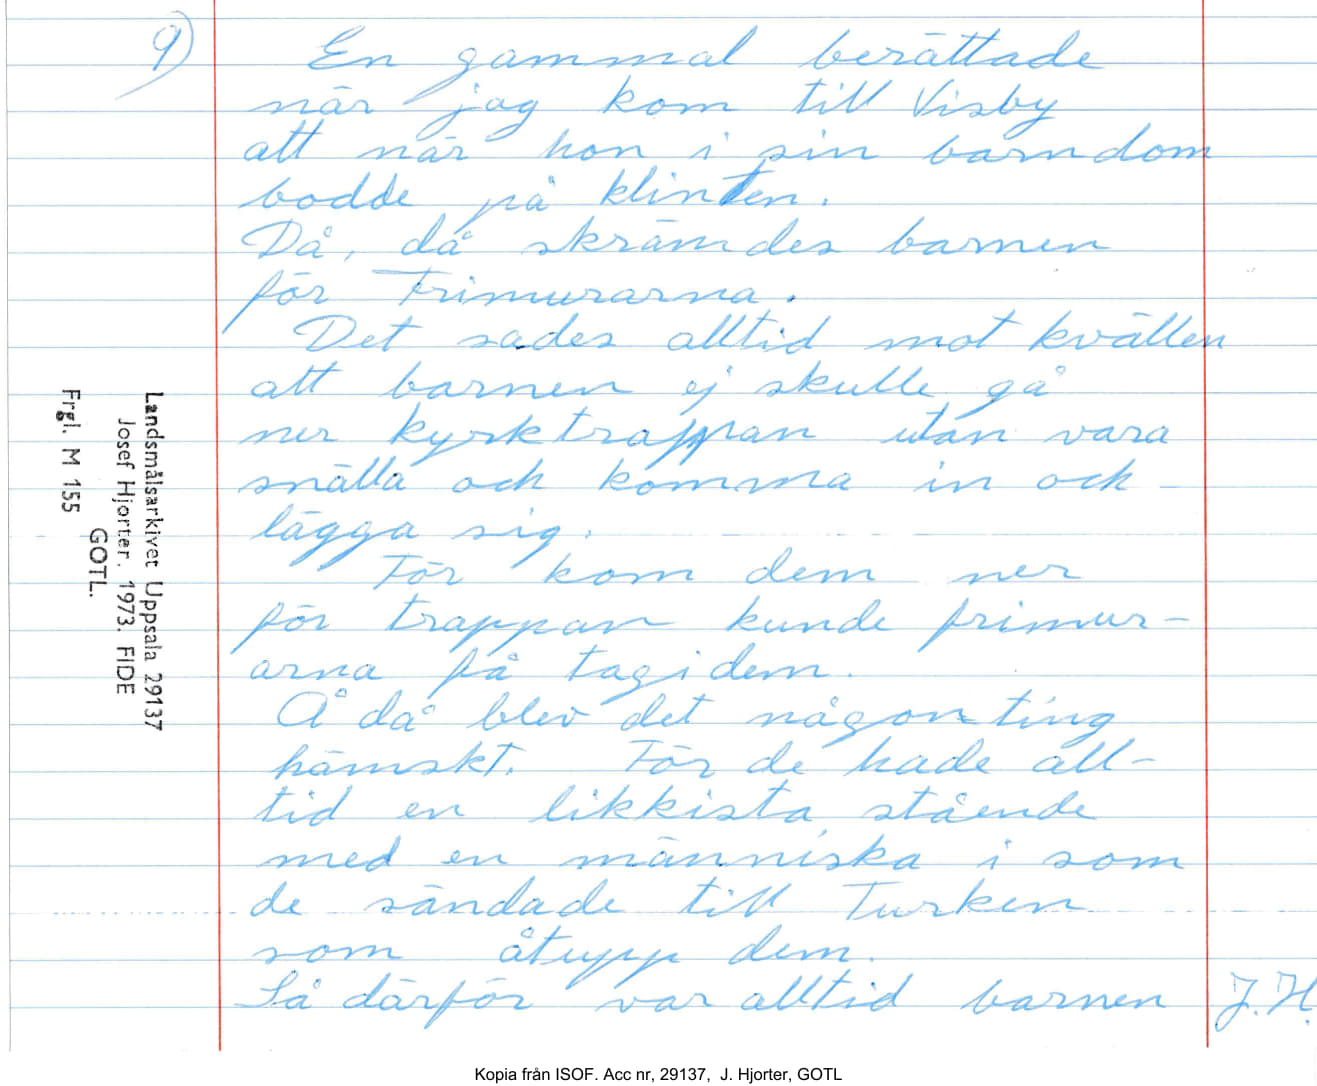 9)
En gammal berättade
när jag kom till Visby
att när hon i sin barndom
bodde på klinten.
Då, då skrämdes barnen
för Frimurarna.
Det sades alltid mot kvällen
att barnen ej skulle gå
ner kyrktrappan utan vara
snälla och komma in och
lägga sig.
För kom dem ner
för trappan kunde frimur-
arna få tag i dem.
Å då blev det någonting
hämskt. För de hade all-
tid en likkista stående
med en människa i som
de sändade till Turken
som åt upp dem.
Så därför var alltid barnen
J.H.
Landsmålsarkivet Uppsala 29137
Josef Hjorter. 1973. FIDE
GOTL.
Frgl. M 155
Kopia från ISOF. Acc nr, 29137, J. Hjorter, GOTL